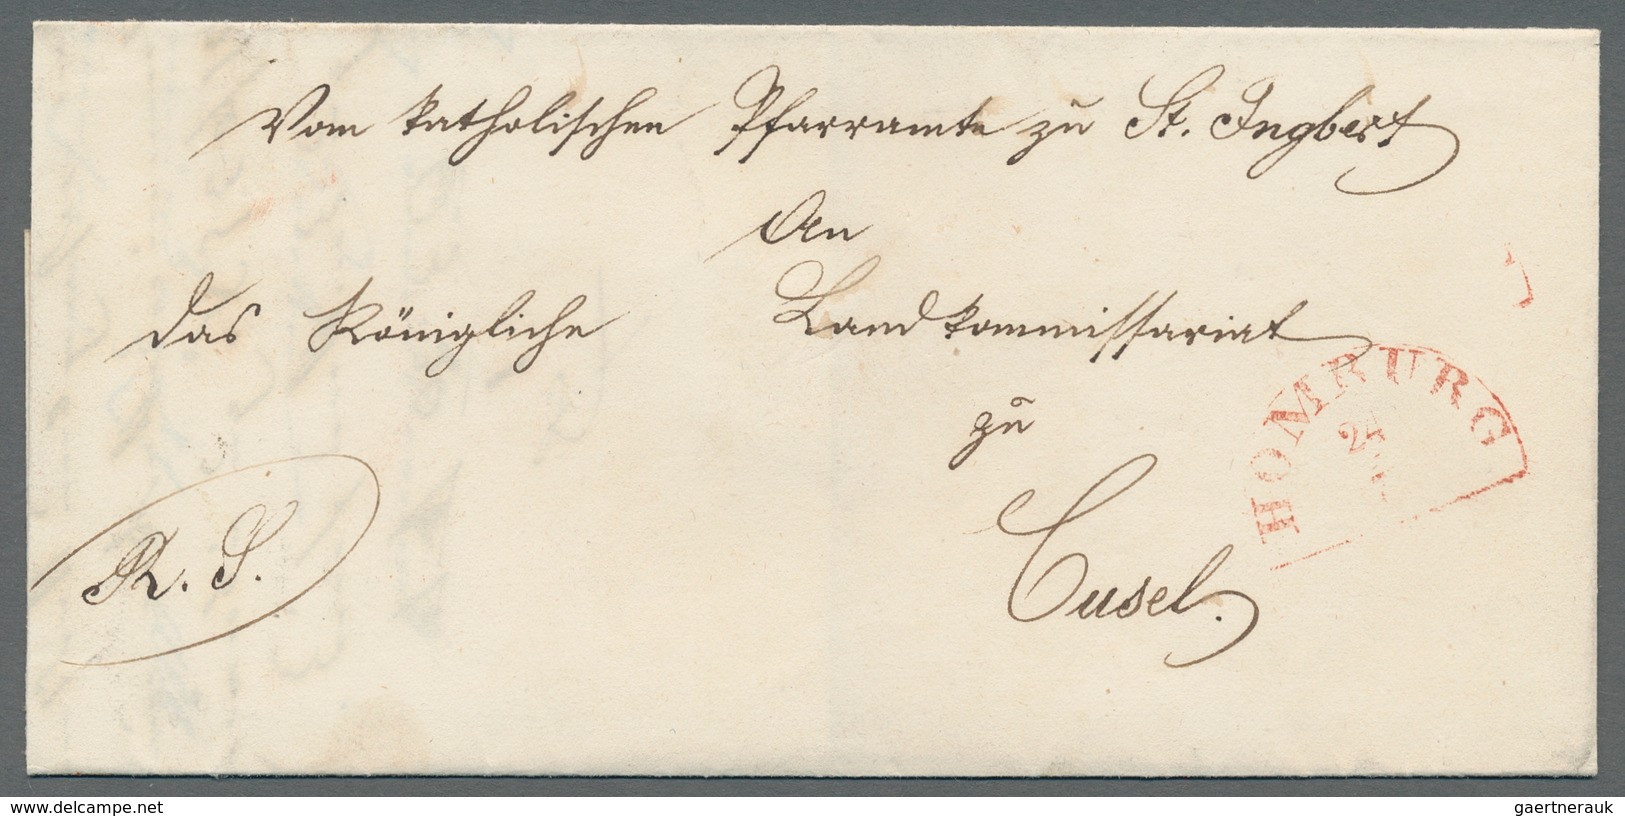 Vom katholischen Pfarramte zu St. Ingbert
An
das Königliche Landkommissariat
zu
Cusel.
R. S.
HOMBURG
24
www.delcampe.net
gaertnerauk